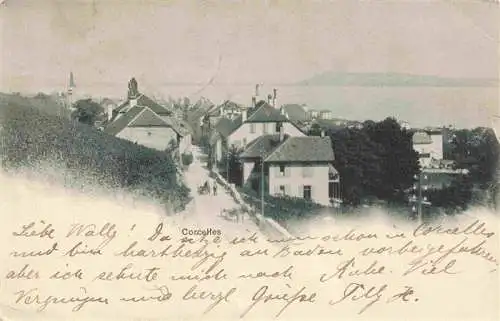 Corcelles
Liebe Wally! Da sitze ich nun schon in Corcelles
und bin an Baden vorbei gefahren
aber ich sehnte mich nach Ruhe. Viel
Vergnügen und herzl. Grüsse Tilly H.